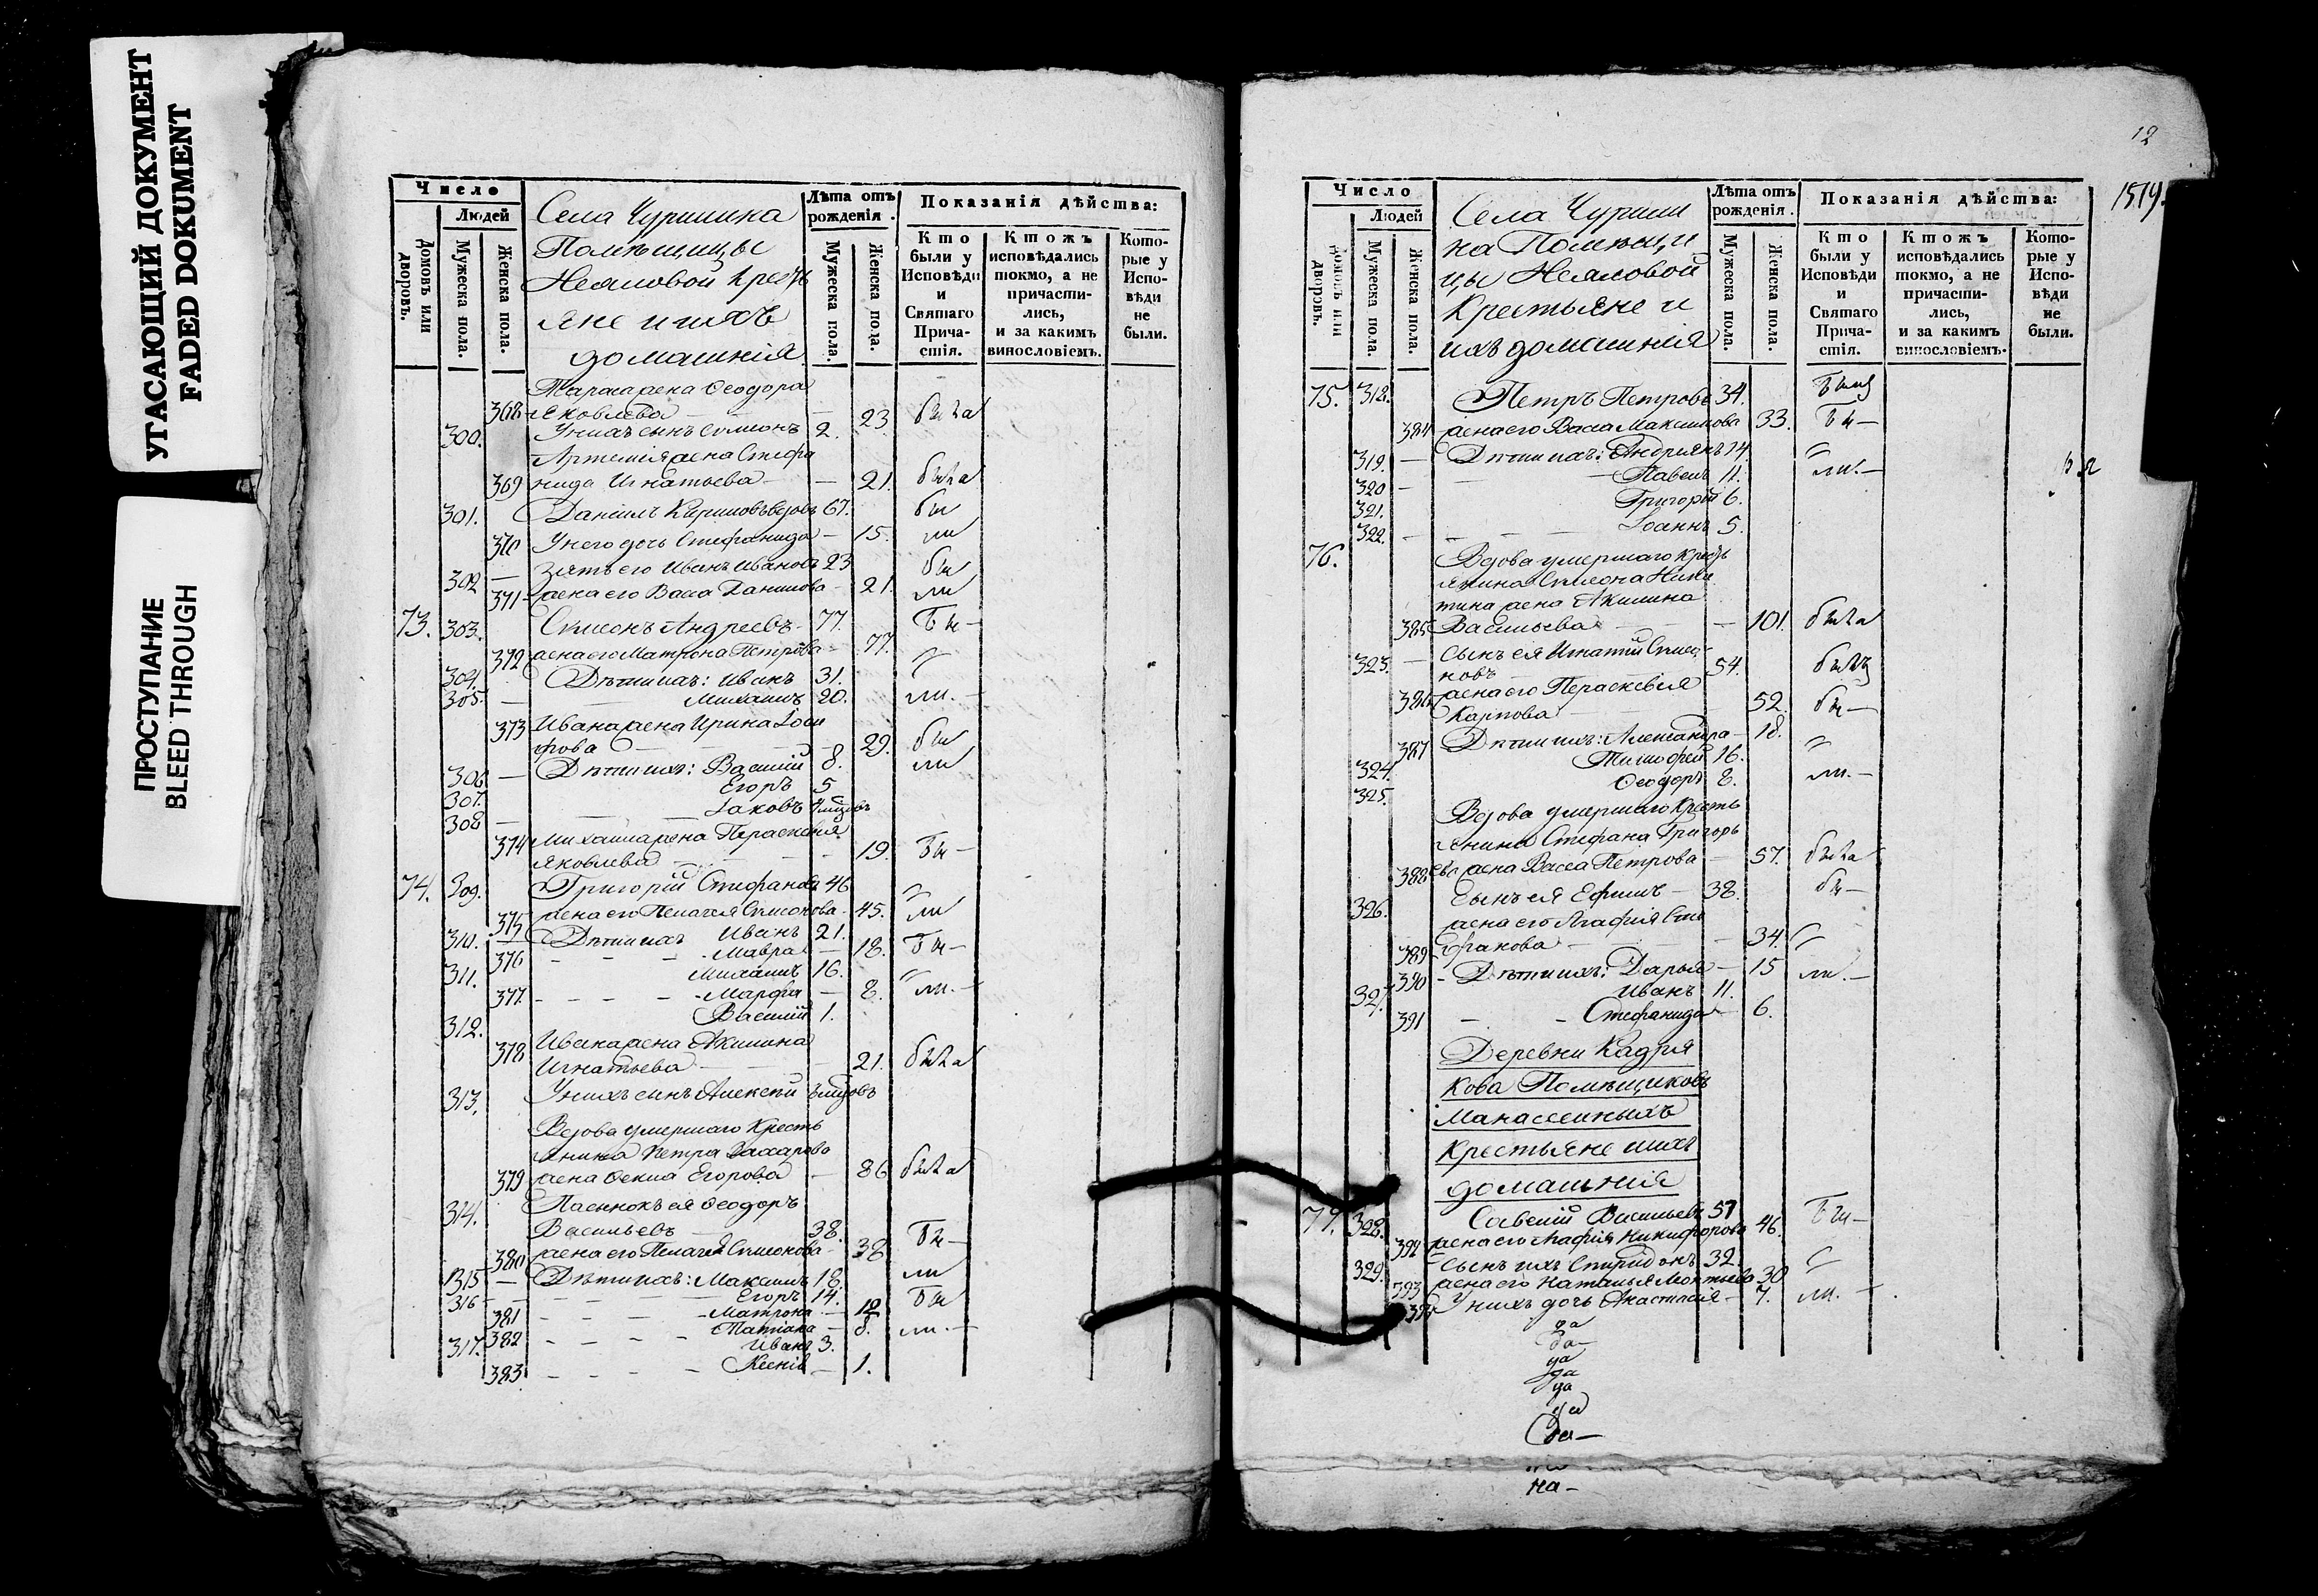 УГАСАЮЩИЙ ДОКУМЕНТ
FADED DOKUMENT
ПРОСТУПАНИЕ
BLEED THROUGH
Число
Людей
Домовъ или дворовъ.
Мужеска пола.
Женска пола.
Села Чуришка
Помѣщицы
Неяловой Кресть
яне и ихъ
домашнія
Лѣта отъ рожденія.
Мужеска пола.
Женска пола.
Показанія дѣйства:
Кто были у Исповѣди и Святаго Причастія.
Ктожъ исповѣдались токмо, а не причастились, и за какимъ винословіемъ.
Которые у Исповѣди не были.
жена Ѳеодора
368 Яковлева 23 была
300. У нихъ сынъ Симеонъ 2.
Артемія жена Стефа
369 нида Игнатьева 21. была
301. Даніилъ вдовъ 67. бы
370 У него дочь Стефанида 15. ли
302 зять его Иванъ Ивановъ 23 бы
371 жена его Васса Данилова 21. ли
73. 303. Симеонъ Андреевъ 77. бы
372 жена его Матрона Петрова 77.
304. Дѣти ихъ: Иванъ 31.
305. Михаилъ 20. ли.
373 Ивана жена Ирина Іоси
фова 29. бы
306 Дѣти ихъ: Василій 8. ли
307. Егоръ 5
308 Іаковъ
374 Михаила жена Параскевія
Яковлева 19. бы
74. 309. Григорій Стефановъ 46
375 жена его Пелагея Симеонова 45. ли
310. Дѣти ихъ Иванъ 21.
376 Мавра 18. бы
311. Михаилъ 16.
377. Марѳа 8. ли.
312. Василій 1.
378 Ивана жена Акилина
Игнатьева 21. была
313. У нихъ сынъ Алексѣй
Вдова умершаго Кресть
янина Петра Захарова
379 жена Ѳекла Егорова 86 была
314. Пасынокъ ея Ѳеодоръ
Васильевъ 38.
380 жена его Пелагея Симеонова 38 бы
315 Дѣти ихъ: Максимъ 18. ли
316 Егоръ 14.
381 Матрона 12 бы
382 Татіана 8. ли.
317. Иванъ 3.
383 Ксенія 1.
12
1519.
Число
Людей
Домовъ или дворовъ.
Мужеска пола.
Женска пола.
Села Чуриш
ка Помѣщи
цы Неяловой
Крестьяне и
ихъ домашнія
Лѣта отъ рожденія.
Мужеска пола.
Женска пола.
Показанія дѣйства:
Кто были у Исповѣди и Святаго Причастія.
Ктожъ исповѣдались токмо, а не причастились, и за какимъ винословіемъ.
Которые у Исповѣди не были.
75. 318. Петръ Петровъ 34. былъ
384 жена его Васса Максимова 33. бы
319. Дѣти ихъ: Андріянъ 14.
320 Павелъ 11. ли.
321. Григорій 6.
322. Іоаннъ 5.
76. Вдова умершаго Кресть
янина Симеона Ники
тина жена Акилина
385 Васильева 101. была
323. Сынъ ея Игнатій Симео
новъ 54. былъ
386 жена его Параскевія
Карпова 52. бы
387 Дѣти ихъ: Александра 18.
324. Тимофей 16.
325. Ѳеодоръ 8. ли.
Вдова умершаго Кресть
янина Стефана Григорь
388 ева жена Васса Петрова 57. была
326. Сынъ ея Ефимъ 38. бы
жена его Агафія Сте
389 фанова 34.
390 Дѣти ихъ: Дарья 15 ли.
327. Иванъ 11.
391 Стефанида 6.
Деревни Кадря
кова Помѣщиковъ
Манассеиныхъ
Крестьяне и ихъ
домашнія
77. 328. Савелій Васильевъ 57 бы
392 жена его Агафія Никифорова 46.
329. Сынъ ихъ Спиридонъ 32.
393 жена его Наталья 30
394 У нихъ дочь Анастасія 7. ли.